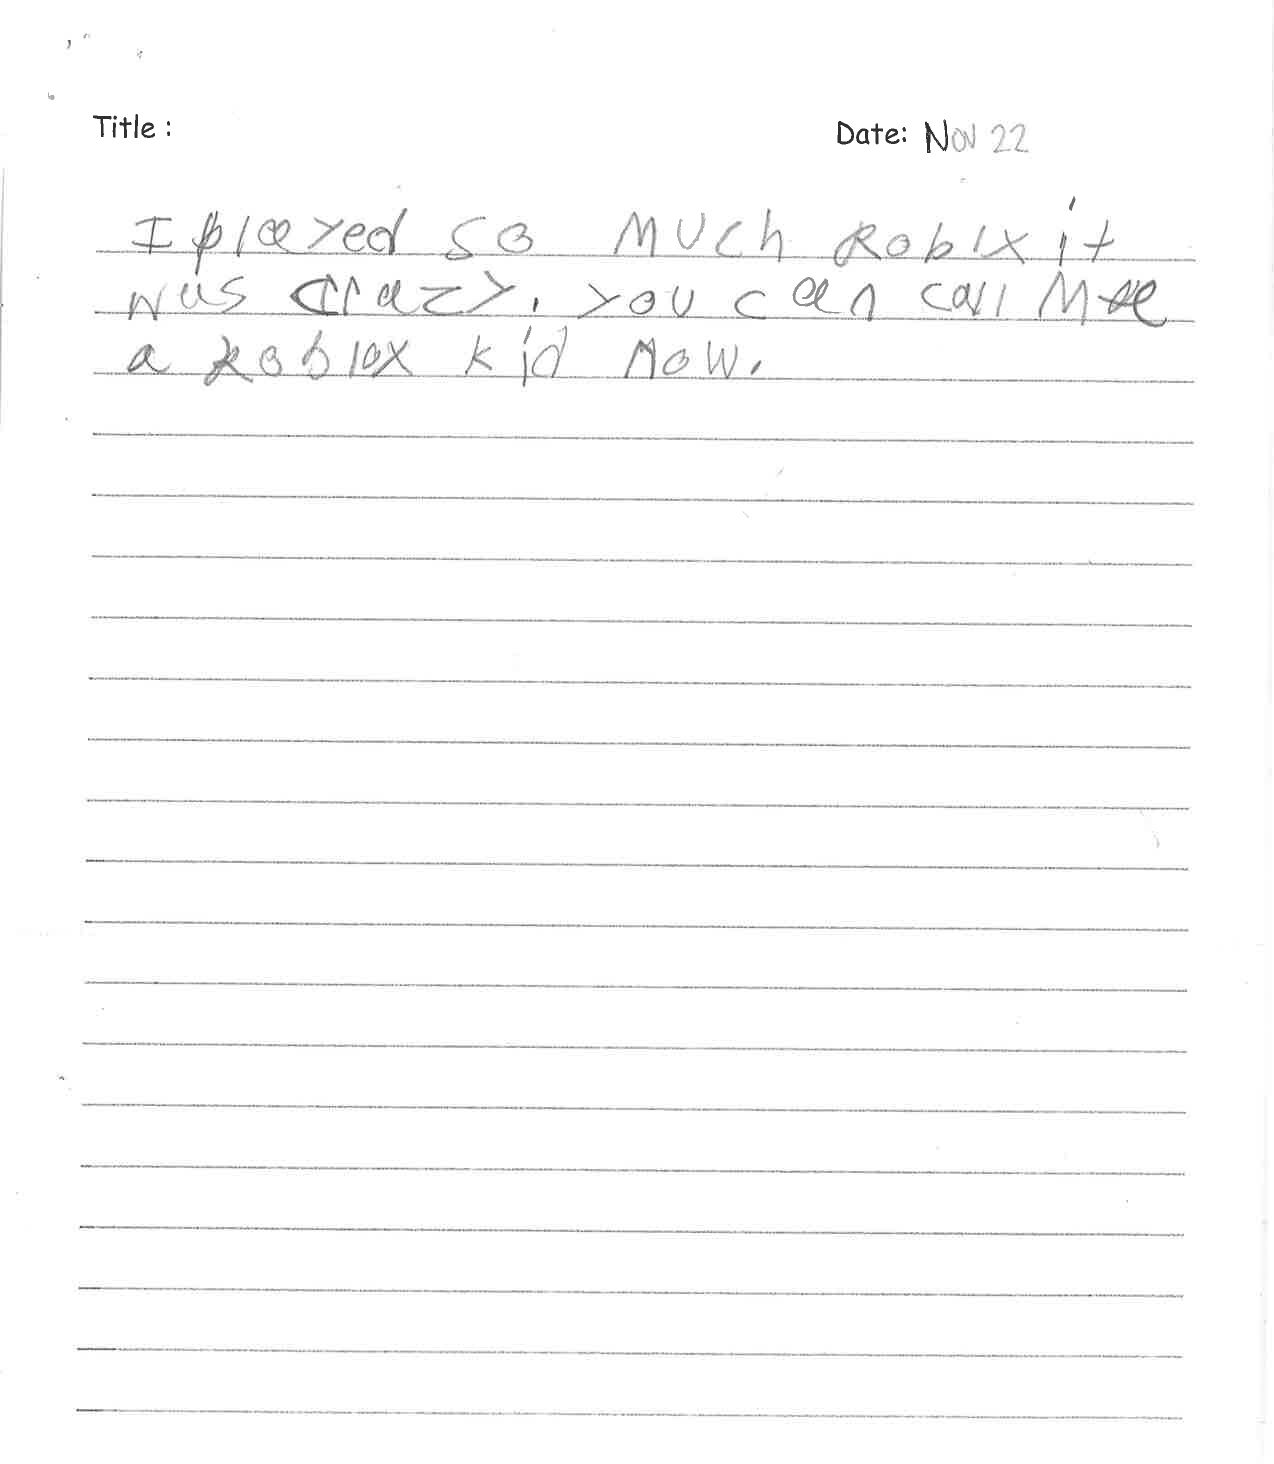 Title :
Date: Nov 22
I played so much Robix it
was crazy. you can call Me
a Roblox kid now.